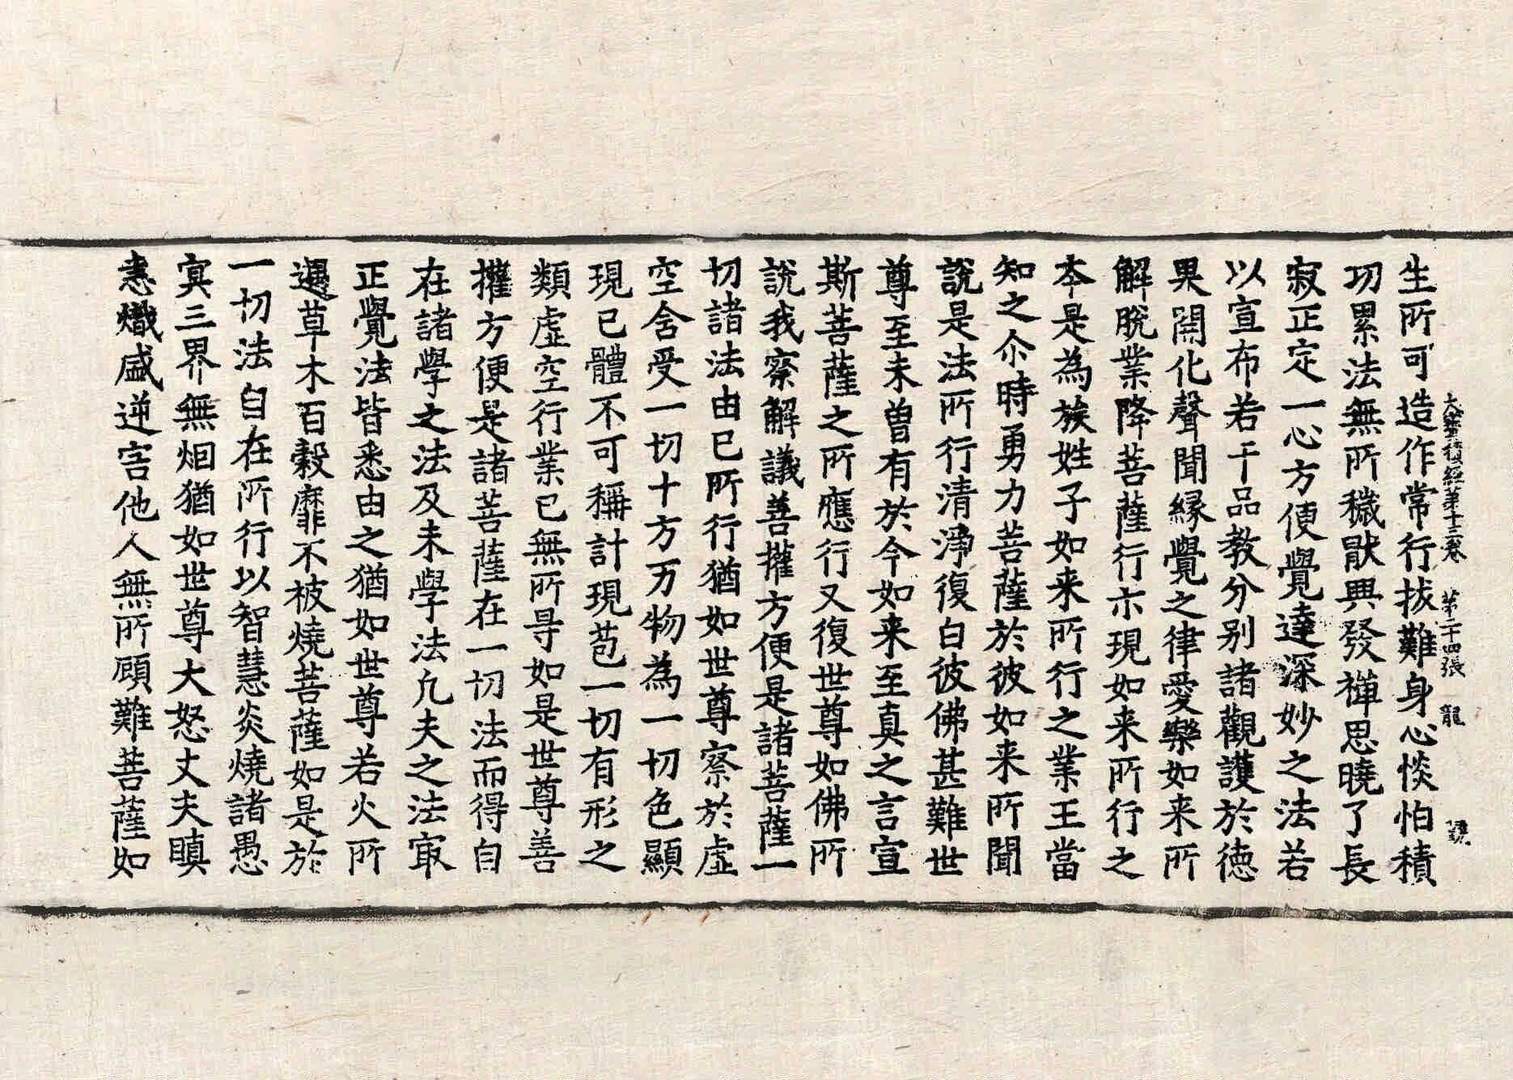 大寶積經第十三卷　第二十四張　龍
生所可造作常行拔難身心惔怕積
功累法無所穢猒興發禪思曉了長
寂正定一心方便覺達深妙之法若
以宣布若干品教分別諸觀護於德
果開化聲聞緣覺之律愛樂如來所
解脫業降菩薩行亦現如來所行之
本是為族姓子如来所行之業王當
知之尒時勇力菩薩於彼如来所聞
說是法所行清淨復白彼佛甚難世
尊至未曾有於今如来至真之言宣
斯菩薩之所應行又復世尊如佛所
說我察解議善攉方便是諸菩薩一
切諸法由已所行猶如世尊察於虛
空舍受一切十方万物為一切色顯
現已體不可稱計現苞一切有形之
類虛空行業已無所㝵如是世尊善
攉方便是諸菩薩在一切法而得自
在諸學之法及未學法凢夫之法㝡
正覺法皆悉由之猶如世尊若火所
遍草木百穀靡不被燒菩薩如是於
一切法自在所行以智慧炎燒諸愚
㝠三界無烟猶如世尊大怒丈夫瞋
恚熾盛逆害他人無所顧難菩薩如